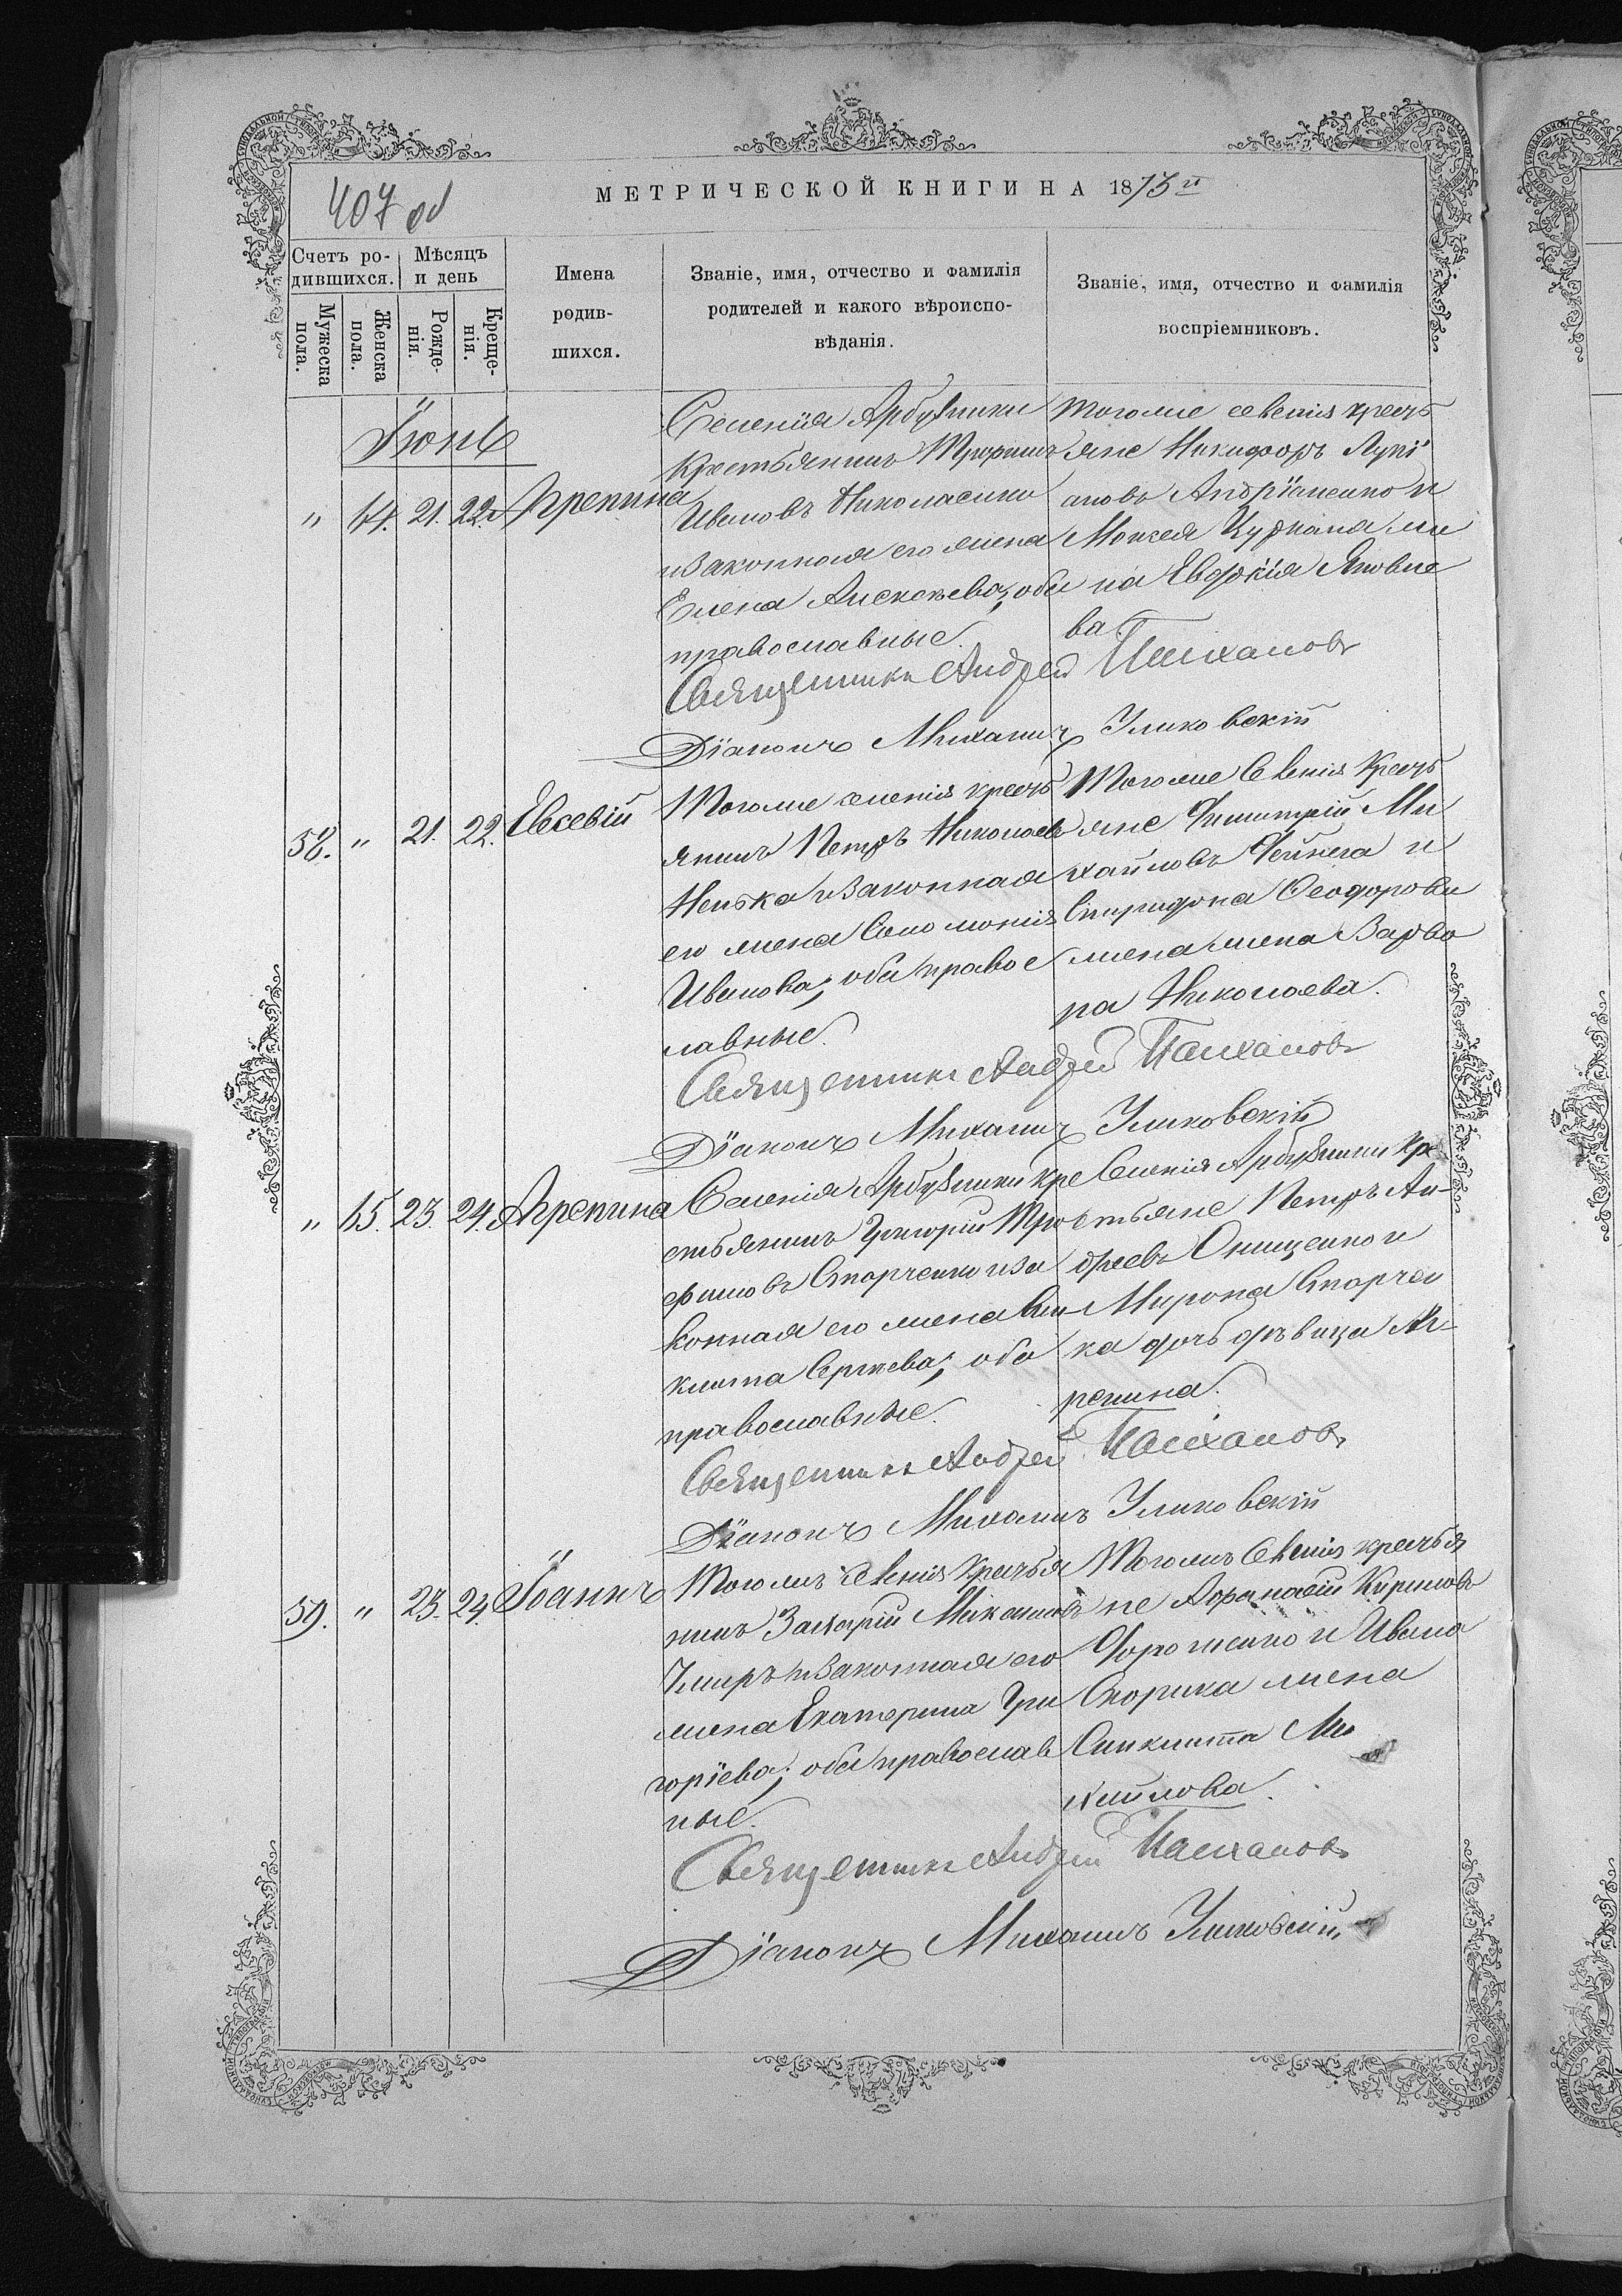 407 об
МЕТРИЧЕСКОЙ КНИГИ НА 1873 й
Счетъ ро-
дившихся.
Мѣсяцъ
и день
Мужеска
пола.
Женска
пола.
Рожде-
нія.
Креще-
нія.
Имена
родив-
шихся.
Званіе, имя, отчество и фамилія
родителей и какого вѣроиспо-
вѣданія.
Званіе, имя, отчество и фамилія
воспріемниковъ.
Іюнь
" 21. 22. Агрепина
Селенія Арбузинки
Крестьянинъ Трофимъ
Ивановъ Николаенко
и законная его жена
Елена Алексѣева, оба
православные.
тогоже селенія кресть
яне Никифоръ Лукі
ановъ Андріяненко и
Мокея Цуркана же
на Евдокія Яковле
ва
Священникъ Андрей Пасхаловъ
Діаконъ Михаилъ Улико вскій
58. " 21. 22. Евсевій
Тогоже селенія кресть
янинъ Петръ Николаевъ
Ненька и законная
его жена Соломонія
Иванова; оба правос
лавные.
Тогоже Селенія Кресть
яне Димитрій Ми
хайловъ Чейнега и
Спиридона Ѳеодорови
жена Варва
ра Николаева.
Священникъ Андрей Пасхаловъ
Діаконъ Михаилъ Уликовскій
" 65. 23. 24. Агрепина
Селенія Арбузинки Кре
стьянинъ Григорій Тро
фимовъ Старченко и за
конная его жена Син
клита Сергѣева; оба
православные.
Селенія Арбузинки Кре
стьяне Петръ Ан-
дреевъ Онищенко и
Мирона Старчен
ка дочь дѣвица Аг-
репина.
Священникъ Андрей Пасхаловъ
Діаконъ Михаилъ Улико вскій
59. " 23. 24. Іоаннъ
Тогожъ селенія Кресть я
нинъ Захарій Максимовъ
и законная его
жена Екатерина Гри
горіева; оба православ
ные.
Тогожъ Селенія кресть я
не Афанасій Кириловъ
Дороженко и Ивана
Скорика жена
Синклита Ми
хайлова.
Священникъ Андрей Пасхаловъ
Діаконъ Михаилъ Уликовскій